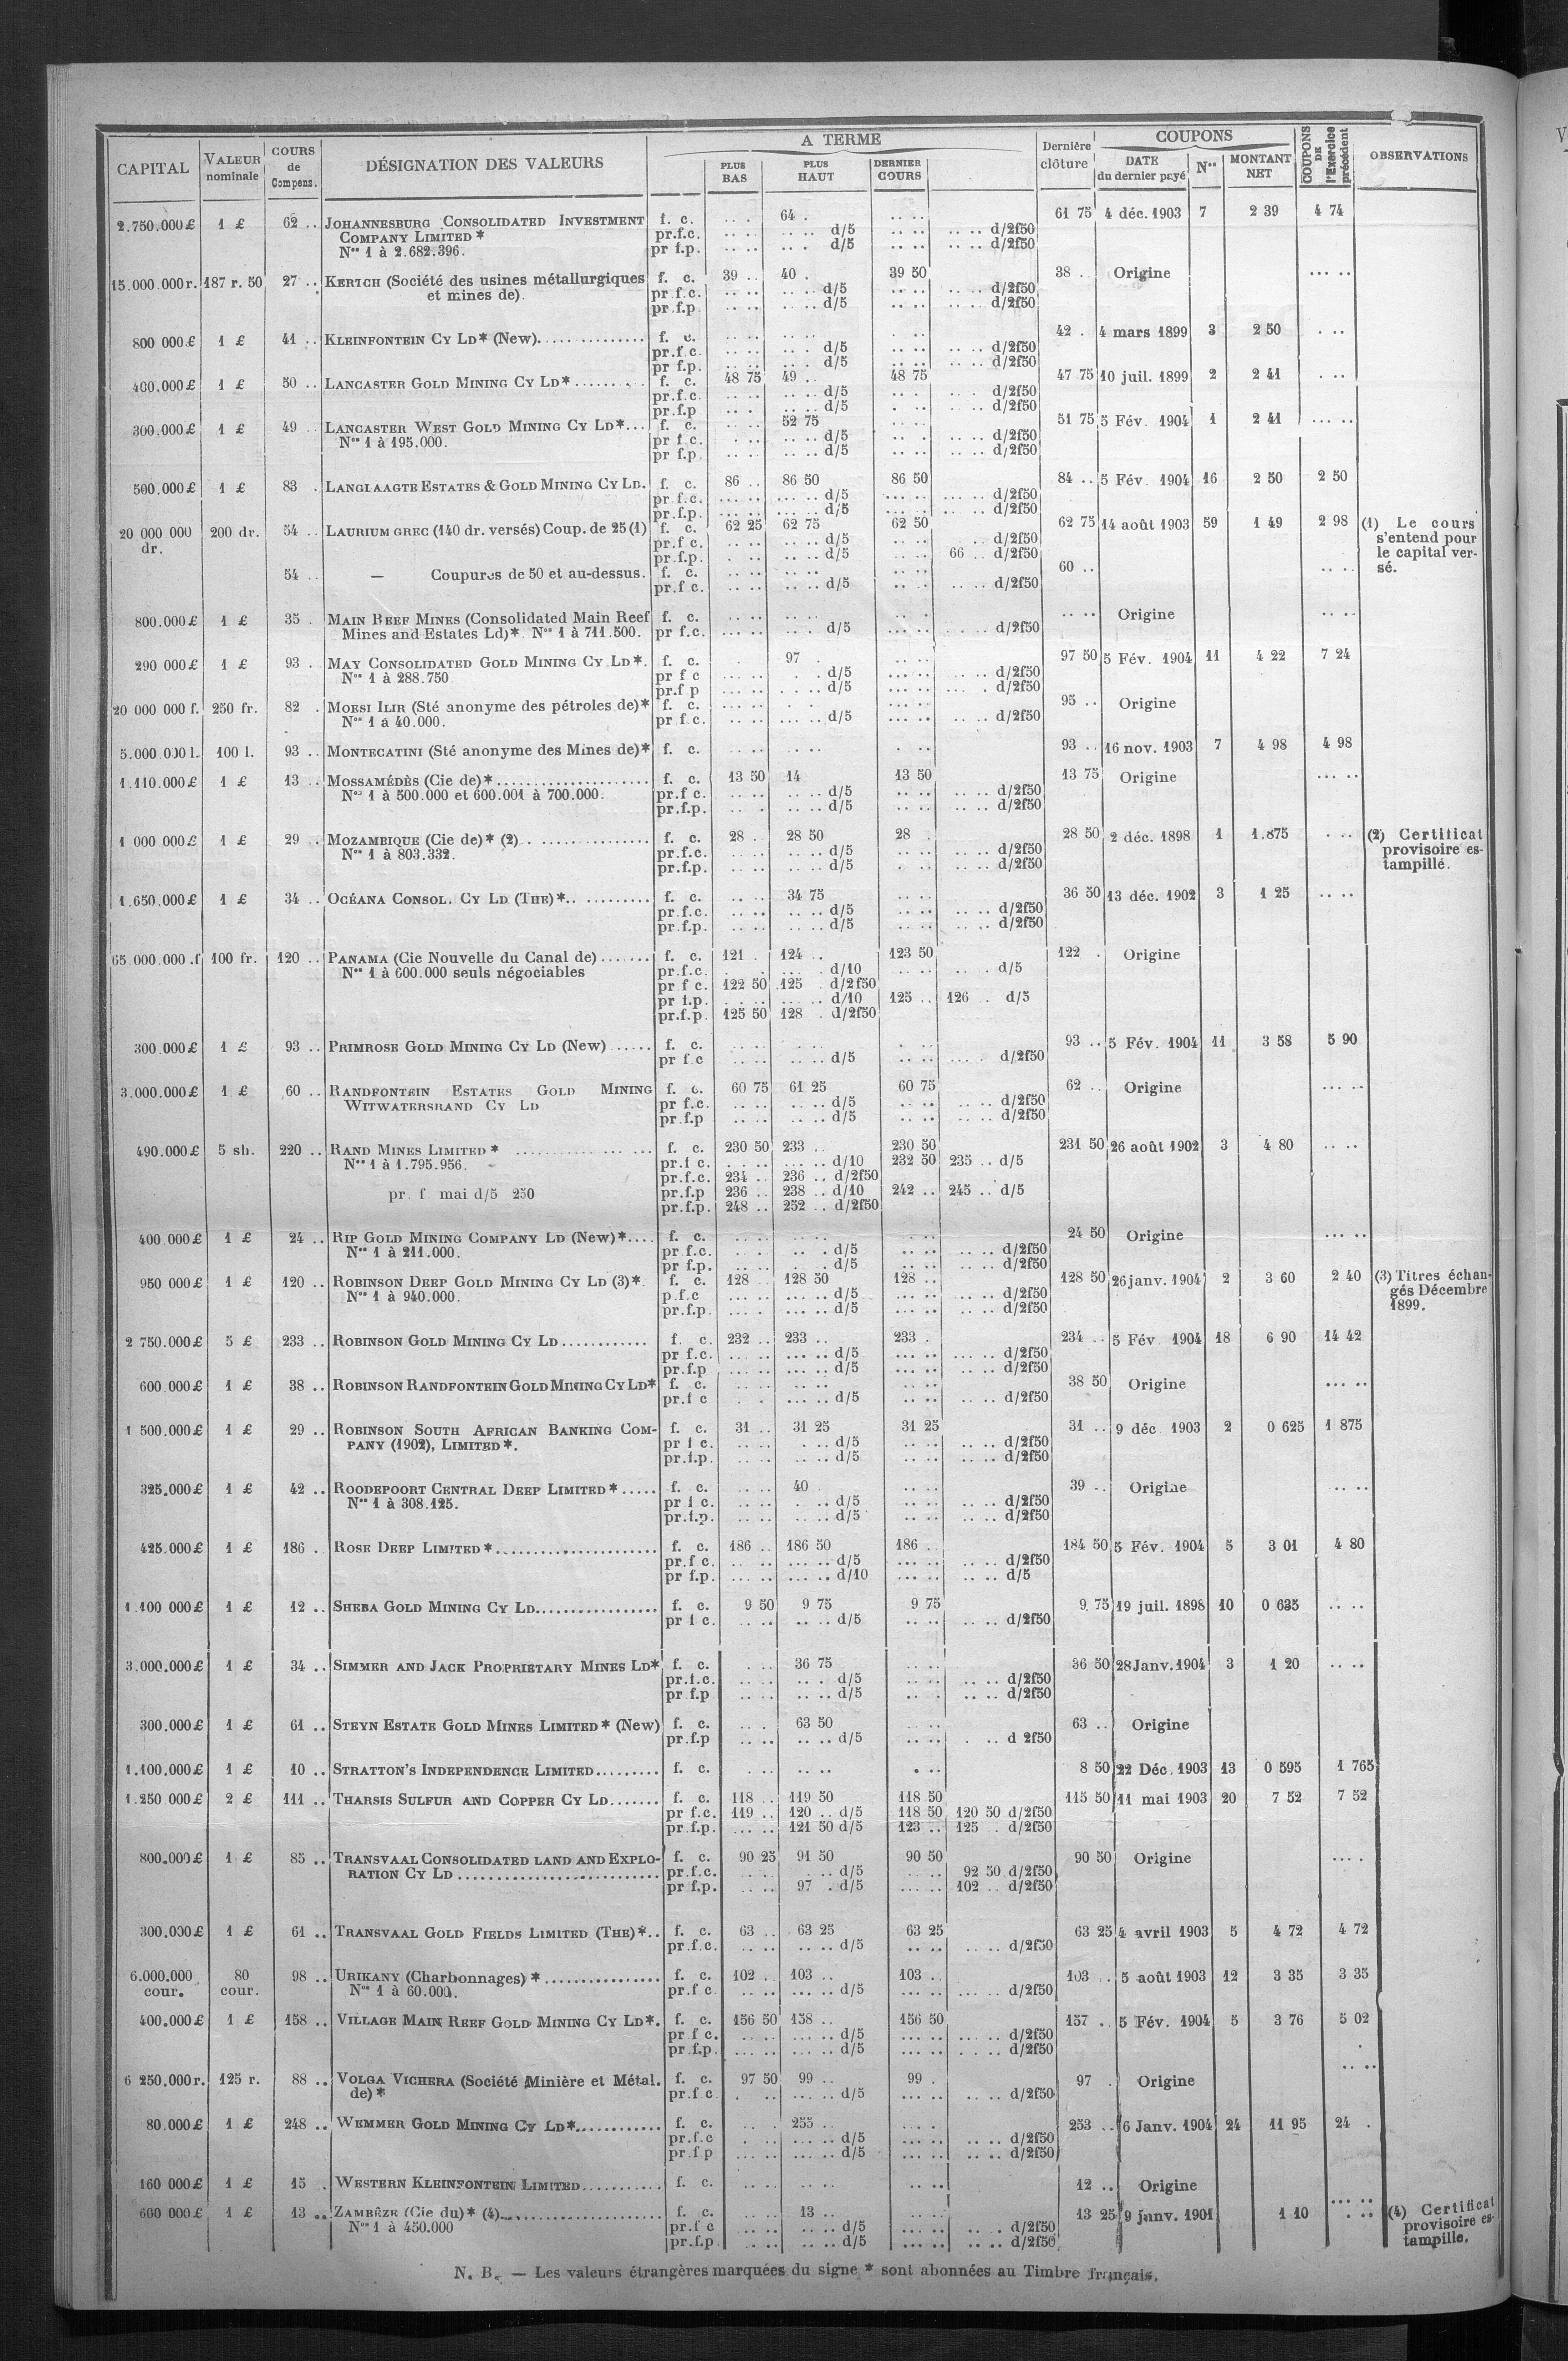 CAPITAL | VALEUR nominale | COURS de Compens. | DÉSIGNATION DES VALEURS | A TERME | PLUS BAS | PLUS HAUT | DERNIER COURS | Dernière clôture | COUPONS | DATE du dernier payé | Nos | MONTANT NET | COUPONS DE l'Exercice précédent | OBSERVATIONS
2.750.000£ 1 £ 62 .. JOHANNESBURG CONSOLIDATED INVESTMENT f. c. .. . 64 . .. .. 61 75 4 déc. 1903 7 2 39 4 74
COMPANY LIMITED * pr.f.c. .. .. .. .. d/5 .. .. .. .. d/2f50
Nos 1 à 2.682.396. pr f.p. .. .. .. . d/5 .. .. .. .. d/2f50
15.000.000r. 187 r. 50 27 .. KERTCH (Société des usines métallurgiques f. c. 39 .. 40 . 39 50 38 .. Origine ... ..
et mines de). pr f.c. .. .. .. .. d/5 .. .. .. .. d/2f50
pr.f.p .. .. .. .. d/5 .. .. .. .. d/2f50
800 000£ 1 £ 41 .. KLEINFONTEIN CY LD* (New). f. c. .. .. .. .. . .. 42 . 4 mars 1899 3 2 50 . ..
pr.f.c. .. .. .. . d/5 .. .. .. .. d/2f50
pr f.p. .. .. .. . d/5 .. .. .. .. d/2f50
400.000£ 1 £ 50 .. LANCASTER GOLD MINING CY LD* f. c. 48 75 49 .. 48 75 47 75 10 juil. 1899 2 2 41 . ..
pr.f.c. .. .. .. .. d/5 .. . .. . d/2f50
pr.f.p .. . .. .. d/5 . .. .. .. d/2f50
300.000£ 1 £ 49 .. LANCASTER WEST GOLD MINING CY LD* f. c. .. .. 52 75 .. .. 51 75 5 Fév. 1904 1 2 41 ... ..
Nos 1 à 195.000. pr f c. . .. .. .. d/5 .. . .. .. d/2f50
pr f.p. .. .. .. .. d/5 .. .. .. .. d/2f50
500.000£ 1 £ 83 . LANGLAAGTE ESTATES & GOLD MINING CY LD. f. c. 86 .. 86 50 86 50 84 .. 5 Fév. 1904 16 2 50 2 50
pr.f.c. ... .. ... .. d/5 ... .. ... .. d/2f50
pr.f.p. ... .. ... .. d/5 ... .. ... .. d/2f50
20 000 000 200 dr. 54 .. LAURIUM GREC (140 dr. versés) Coup. de 25 (1) f. c. 62 25 62 75 62 50 62 75 14 août 1903 59 1 49 2 98 (1) Le cours
dr. pr.f c. .. .. .. .. d/5 .. . .. d/2f50 s'entend pour
pr.f.p. . .. .. .. d/5 .. .. 66 .. d/2f50 le capital ver-
54 .. — Coupures de 50 et au-dessus. f. c. .. .. .. .. .. .. 60 .. .. .. sé.
pr.f c. .. .. .. .. d/5 .. . .. .. d/2f50
800.000£ 1 £ 35 . MAIN REEF MINES (Consolidated Main Reef f. c. .. .. .. .. .. . .. .. Origine .. ..
Mines and Estates Ld)* Nos 1 à 711.500. pr f.c. ... .. .. . d/5 ... .. .. .. d/2f50
290 000£ 1 £ 93 . MAY CONSOLIDATED GOLD MINING CY LD*. f. c. . 97 . .. .. 97 50 5 Fév. 1904 11 4 22 7 24
Nos 1 à 288.750 pr f c ... .. . . d/5 ... .. .. .. d/2f50
pr.f p ... .. . .. d/5 ... .. ... . d/2f50
20 000 000 f. 250 fr. 82 . MOESI ILIR (Sté anonyme des pétroles de)* f. c. .. .. . . . .. 95 .. Origine
Nos 1 à 40.000. pr f.c. .. .. ... .. d/5 .. .. .. .. d/2f50
5.000 000 l. 100 l. 93 .. MONTECATINI (Sté anonyme des Mines de)* f. c. .. .. .. .. . .. 93 .. 16 nov. 1903 7 4 98 4 98
1.110.000£ 1 £ 13 .. MOSSAMÉDÈS (Cie de)* f. c. 13 50 14 13 50 13 75 Origine ... ..
Nos 1 à 500.000 et 600.001 à 700.000. pr.f c. .. .. .. .. d/5 .. .. .. .. d/2f50
pr.f.p. .. . .. .. d/5 .. .. .. .. d/2f50
1 000 000£ 1 £ 29 .. MOZAMBIQUE (Cie de)* (2) f. c. 28 . 28 50 28 . 28 50 2 déc. 1898 1 1.875 . .. (2) Certificat
Nos 1 à 803.332. pr.f.c. .. .. .. .. d/5 .. .. .. .. d/2f50 provisoire es-
pr.f.p. .. .. .. .. d/5 . .. .. .. d/2f50 tampillé.
1.650.000£ 1 £ 34 .. OCÉANA CONSOL. CY LD (THE)* f. c. .. .. 34 75 .. .. 36 50 13 déc. 1902 3 1 25 .. ..
pr.f.c. .. .. .. .. d/5 .. .. .. .. d/2f50
pr.f.p. .. .. .. .. d/5 .. .. .. .. d/2f50
65.000.000.f 100 fr. 120 .. PANAMA (Cie Nouvelle du Canal de) f. c. 121 . 124 .. 123 50 122 . Origine
Nos 1 à 600.000 seuls négociables pr.f.c. . . ... . d/10 .. .. .. . d/5
pr f c. 122 50 125 . d/2f50
pr f.p. . .. ... .. d/10 125 .. 126 . d/5
pr.f.p. 125 50 128 . d/2f50
300.000£ 1 £ 93 .. PRIMROSE GOLD MINING CY LD (New) f. c. .. .. .. . . .. 93 .. 5 Fév. 1904 11 3 58 5 90
pr f c .. .. .. .. d/5 .. .. ... . d/2f50
3.000.000£ 1 £ 60 .. RANDFONTEIN ESTATES GOLD MINING f. c. 60 75 61 25 60 75 62 .. Origine ... ..
WITWATERSRAND CY LD pr f.c. .. .. .. .. d/5 .. .. .. .. d/2f50
pr.f.p .. .. .. .. d/5 .. .. .. .. d/2f50
490.000£ 5 sh. 220 .. RAND MINES LIMITED * f. c. 230 50 233 .. 230 50 231 50 26 août 1902 3 4 80 .. ..
Nos 1 à 1.795.956. pr.f c. . .. ... .. d/10 232 50 235 .. d/5
pr.f.c. 234 .. 236 .. d/2f50
pr. f. mai d/5 250 pr.f.p 236 .. 238 .. d/10 242 .. 245 .. d/5
pr.f.p. 248 .. 252 .. d/2f50
400.000£ 1 £ 24 .. RIP GOLD MINING COMPANY LD (New)* f. c. .. .. .. .. .. .. 24 50 Origine ... ..
Nos 1 à 211.000. pr f.c. .. . .. . d/5 .. .. .. .. d/2f50
pr f.p. .. .. . . d/5 .. .. .. .. d/2f50
950 000£ 1 £ 120 .. ROBINSON DEEP GOLD MINING CY LD (3)*. f. c. 128 .. 128 50 128 .. 128 50 26 janv. 1904 2 3 60 2 40 (3) Titres échan-
Nos 1 à 940.000. p.f.c .. .. ... .. d/5 ... .. .. .. d/2f50 gés Décembre
pr.f.p. .. . ... .. d/5 ... .. .. .. d/2f50 1899.
2 750.000£ 5 £ 233 .. ROBINSON GOLD MINING CY LD f. c. 232 .. 233 .. 233 . 234 .. 5 Fév 1904 18 6 90 14 42
pr f.c. ... .. ... .. d/5 ... .. ... .. d/2f50
pr.f.p ... .. ... .. d/5 ... .. ... .. d/2f50
600.000£ 1 £ 38 .. ROBINSON RANDFONTEIN GOLD MINING CY LD* f. c. .. .. .. .. .. .. 38 50 Origine ... ..
pr.f c . . ... .. d/5 .. .. .. .. d/2f50
1 500.000£ 1 £ 29 .. ROBINSON SOUTH AFRICAN BANKING COM- f. c. 31 .. 31 25 31 25 31 .. 9 déc 1903 2 0 625 1 875
PANY (1902), LIMITED*. pr f c. .. .. . .. d/5 .. .. .. .. d/2f50
pr.f.p. .. .. .. .. d/5 .. .. .. .. d/2f50
325.000£ 1 £ 42 .. ROODEPOORT CENTRAL DEEP LIMITED* f. c. .. .. 40 . .. .. 39 .. Origine .. ..
Nos 1 à 308.125. pr f c. .. .. . .. d/5 .. .. .. .. d/2f50
pr.f.p. .. .. .. .. d/5 .. .. .. .. d/2f50
425.000£ 1 £ 186 . ROSE DEEP LIMITED* f. c. 186 .. 186 50 186 .. 184 50 5 Fév. 1904 5 3 01 4 80
pr.f c. .. .. ... .. d/5 ... .. .. .. d/2f50
pr f.p. ... .. ... .. d/10 ... .. .. .. d/5
1.100 000£ 1 £ 12 .. SHEBA GOLD MINING CY LD. f. c. 9 50 9 75 9 75 9 75 19 juil. 1898 10 0 635 .. ..
pr f c. .. .. .. .. d/5 .. .. .. .. d/2f50
3.000.000£ 1 £ 34 .. SIMMER AND JACK PROPRIETARY MINES LD* f. c. . .. 36 75 .. .. 36 50 28 Janv. 1904 3 1 20 .. ..
pr.f.c. .. .. .. . d/5 .. .. .. .. d/2f50
pr f.p .. .. .. .. d/5 .. . .. .. d/2f50
300.000£ 1 £ 61 .. STEYN ESTATE GOLD MINES LIMITED* (New) f. c. .. . 63 50 .. .. 63 .. Origine
pr.f.p .. .. .. .. d/5 .. .. . .. d 2f50
1.100.000£ 1 £ 10 .. STRATTON'S INDEPENDENCE LIMITED f. c. . .. .. .. . .. 8 50 22 Déc. 1903 13 0 595 1 765
1.250 000£ 2 £ 111 .. THARSIS SULFUR AND COPPER CY LD f. c. 118 .. 119 50 118 50 115 50 11 mai 1903 20 7 52 7 52
pr f.c. 119 .. 120 .. d/5 118 50 120 50 d/2f50
pr.f.p. ... .. 121 50 d/5 123 .. 125 . d/2f50
800.000£ 1 £ 85 .. TRANSVAAL CONSOLIDATED LAND AND EXPLO- f. c. 90 25 91 50 90 50 90 50 Origine ... .
RATION CY LD pr.f.c. .. .. . .. d/5 . .. 92 50 d/2f50
pr f.p. .. .. 97 . d/5 ... .. 102 .. d/2f50
300.000£ 1 £ 61 .. TRANSVAAL GOLD FIELDS LIMITED (THE)* f. c. 63 .. 63 25 63 25 63 25 4 avril 1903 5 4 72 4 72
pr.f.c. .. .. .. .. d/5 .. .. .. .. d/2f50
6.000.000 80 98 .. URIKANY (Charbonnages) * f. c. 102 .. 103 .. 103 .. 103 .. 5 août 1903 12 3 35 3 35
cour. cour. Nos 1 à 60.000. pr.f c. .. .. ... .. d/5 ... .. ... .. d/2f50
400.000£ 1 £ 158 .. VILLAGE MAIN REEF GOLD MINING CY LD*. f. c. 156 50 158 .. 156 50 157 . 5 Fév. 1904 5 3 76 5 02
pr f c. ... .. ... .. d/5 ... .. ... .. d/2f50
pr.f.p. ... .. ... .. d/5 ... .. . .. d/2f50
6 250.000r. 125 r. 88 .. VOLGA VICHERA (Société Minière et Métal. f. c. 97 50 99 .. 99 . 97 . Origine .. ..
de)* pr.f.c . .. ... .. d/5 ... .. .. .. d/2f50
80.000£ 1 £ 248 .. WEMMER GOLD MINING CY LD* f. c. .. . 255 .. .. . 253 .. 6 Janv. 1904 24 11 95 24 .
pr.f.c . .. ... .. d/5 ... .. .. .. d/2f50
pr f p ... .. ... .. d/5 ... .. .. .. d/2f50
160 000£ 1 £ 15 . WESTERN KLEINFONTEIN LIMITED f. c. .. .. .. .. .. .. 12 .. Origine ... ..
600 000£ 1 £ 13 .. ZAMBÈZE (Cie du)* (4) f. c. . 13 .. .. .. 13 25 9 janv. 1901 1 10 . .. (4) Certificat
Nos 1 à 450.000 pr.f c .. .. .. .. d/5 ... .. .. . d/2f50 provisoire es-
pr.f.p .. .. .. .. d/5 ... .. .. .. d/2f50 tampille.
N. B. — Les valeurs étrangères marquées du signe * sont abonnées au Timbre français.